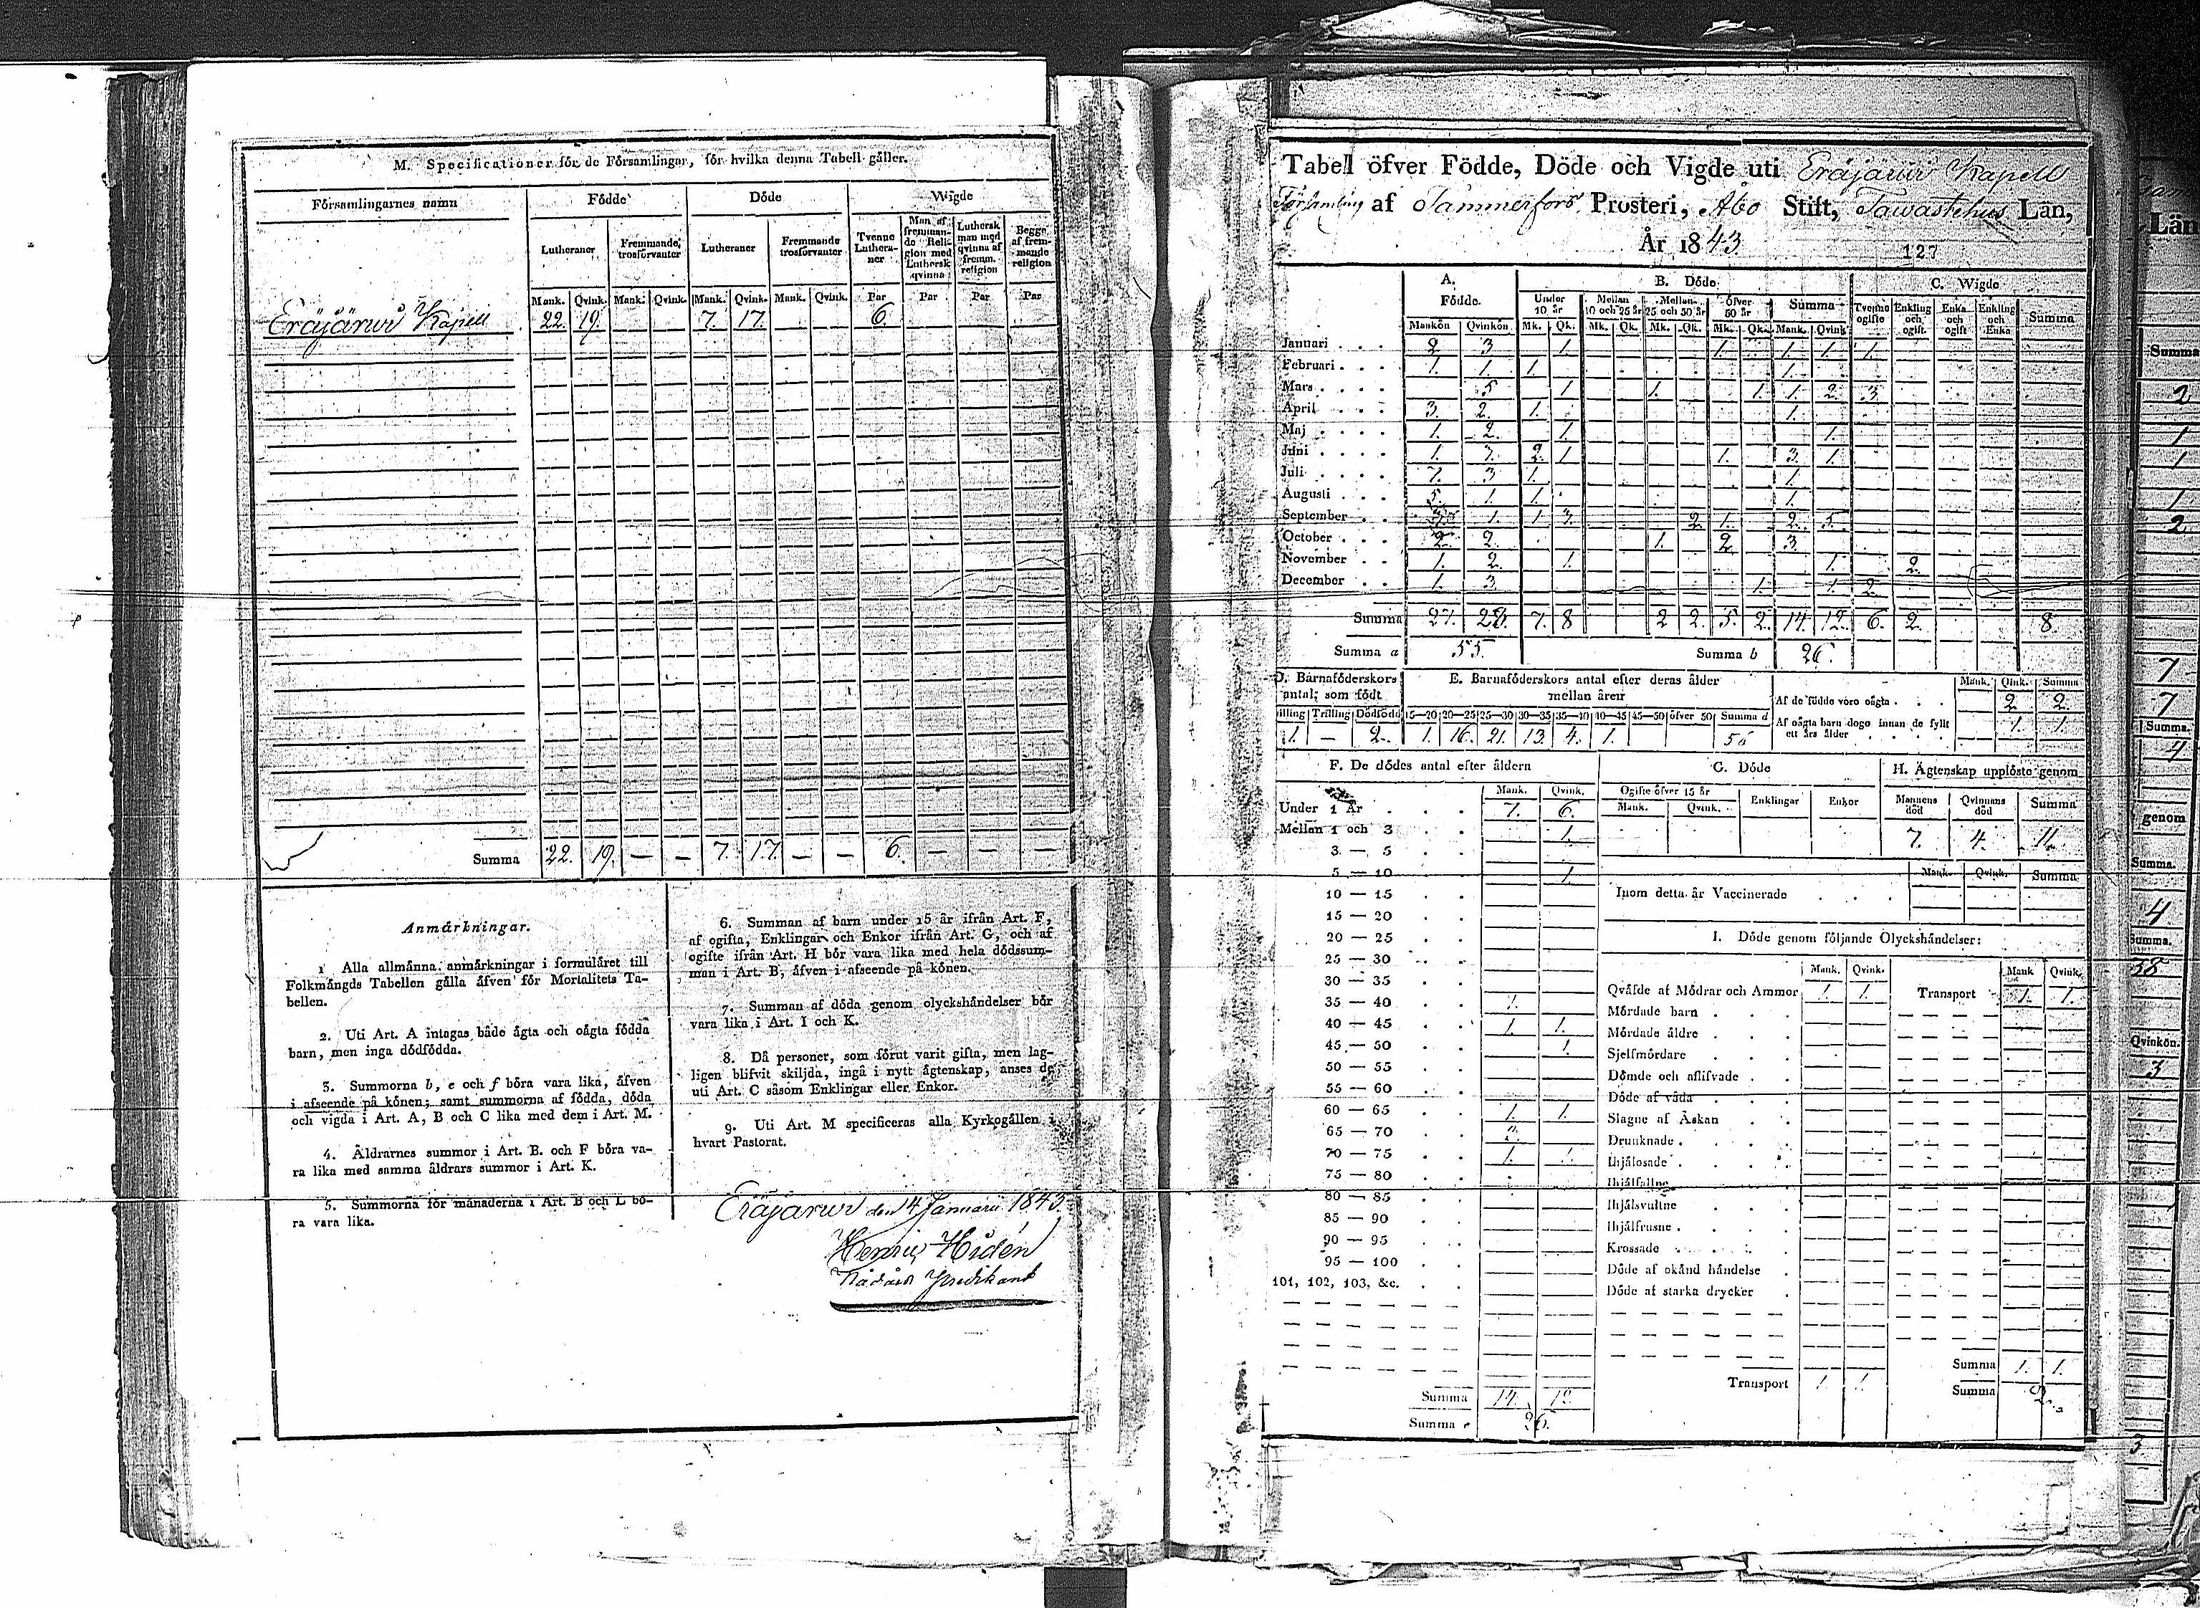 M. Specificationer för de Församlingar, för hvilka denna Tabell gäller.
Församlingarnes namn Födde Döde Wigde
Lutheraner Fremmande trosförvanter Lutheraner Fremmande trosförvanter Tvenne Lutheraner Man af fremmande Religion med Luthersk qvinna Luthersk man med qvinna af fremm. religion Begge af fremmande religion
Mank. Qvink. Mank. Qvink. Mank. Qvink. Mank. Qvink. Par Par Par Par
Eräjärwi Kapell 22. 19. 7. 17. 6.
Summa 22. 19. — — 7. 17. — — 6. — — —
Anmärkningar.
1 Alla allmänna anmärkningar i formuläret till
Folkmängds Tabellen gälla äfven för Mortalitets Ta-
bellen.
2. Uti Art. A intagas både ägta och oägta födda
barn, men inga dödfödda.
3. Summorna b, e och f böra vara lika, äfven
i afseende på könen; samt summorna af födda, döda
och vigda i Art. A, B och C lika med dem i Art. M.
4. Äldrarnes summor i Art. B. och F böra va-
ra lika med samma äldrars summor i Art. K.
5. Summorna för månaderna i Art. B och L bö-
ra vara lika.
6. Summan af barn under 15 år ifrån Art. F,
af ogifta, Enklingar och Enkor ifrån Art. G, och af
ogifte ifrån Art. H bör vara lika med hela dödssum-
man i Art. B, äfven i afseende på könen.
7. Summan af döda genom olyckshändelser bör
vara lika i Art. I och K.
8. Då personer, som förut varit gifta, men lag-
ligen blifvit skiljda, ingå i nytt ägtenskap, anses de
uti Art. C såsom Enklingar eller Enkor.
9. Uti Art. M specificeras alla Kyrkogällen i
hvart Pastorat.
Eräjärwi den 14 Januari 1843.
Henric Hidén
Predikant
Tabell öfver Födde, Döde och Vigde uti Eräjärwi Kapell
Församling af Tammerfors Prosteri, Åbo Stift, Tawastehus Län,
År 1843.
127
A. Födde. B. Döde C. Wigde
Under 10 år Mellan 10 och 25 år Mellan 25 och 50 år öfver 50 år Summa Tvenne ogifte Enkling och ogift. Enka och ogift Enkling och Enka Summa
Mankön Qvinkön Mk. Qk. Mk. Qk. Mk. Qk. Mk. Qk. Mank. Qvink
Januari 2 3 1. 1. 1. 1. 1.
Februari 1. 1. 1. 1.
Mars 5 1 1. 1. 1. 2. 3.
April 3. 2. 1. 1.
Maj 1. 2. 1. 1.
Juni 1. 3. 2. 1. 1. 3. 1.
Juli 7. 3 1. 1
Augusti 5. 1. 1. 1
September 1. 1 3. 2. 1. 2. 5.
October 2. 2. 1. 2. 3.
November 1. 2. 1. 1. 2.
December 1. 3. 1. 1. 2.
Summa 27. 28. 7. 8 2 2. 5. 2. 14. 12. 6. 2. 8.
Summa a 55. Summa b 26.
D. Barnaföderskors antal, som födt
Trilling Dödfödd
1. — 2.
E. Barnaföderskors antal efter deras ålder mellan åren
15—20 20—25 25—30 30—35 35—40 40—45 45—50 öfver 50 Summa d
1. 16. 21. 13. 4. 1. 56
Mank. Qink. Summa
Af de födde voro oägta 2. 2.
Af oägta barn dogo innan de fyllt ett års ålder 1. 1.
F. De dödes antal efter åldern
Mank. Qvink.
Under 1 År 7. 6.
Mellan 1 och 3 1.
3 — 5
5 — 10 1.
10 — 15
15 — 20
20 — 25
25 — 30
30 — 35
35 — 40 1.
40 — 45 1. 1.
45 — 50 1.
50 — 55
55 — 60
60 — 65 1. 1.
65 — 70
70 — 75 1. 1
75 — 80
80 — 85
85 — 90
90 — 95
95 — 100
101, 102, 103, &c.
Summa 14. 12.
Summa e 26.
G. Döde
Ogifte öfver 15 år Enklingar Enkor
Mank. Qvink.
H. Ägtenskap upplöste genom
Mannens död Qvinnans död Summa
7. 4. 11.
Mank. Qvink. Summa
Inom detta år Vaccinerade
I. Döde genom följande Olyckshändelser:
Mank. Qvink. Mank Qvink.
Qväfde af Mödrar och Ammor 1 1. Transport 1. 1.
Mördade barn
Mördade äldre
Sjelfmördare
Dömde och aflifvade
Döde af våda
Slagne af Åskan
Drunknade
Ihjälosade
Ihjälfallne
Ihjälsvultne
Ihjälfrusne
Krossade
Döde af okänd händelse
Döde af starka drycker
Transport 1 1. Summa 1. 1.
Summa 2.
Län
Summa
2
1
1
1
2
7
7
Summa.
4
genom
Summa.
4
Summa.
38
Qvinkön.
3
3.